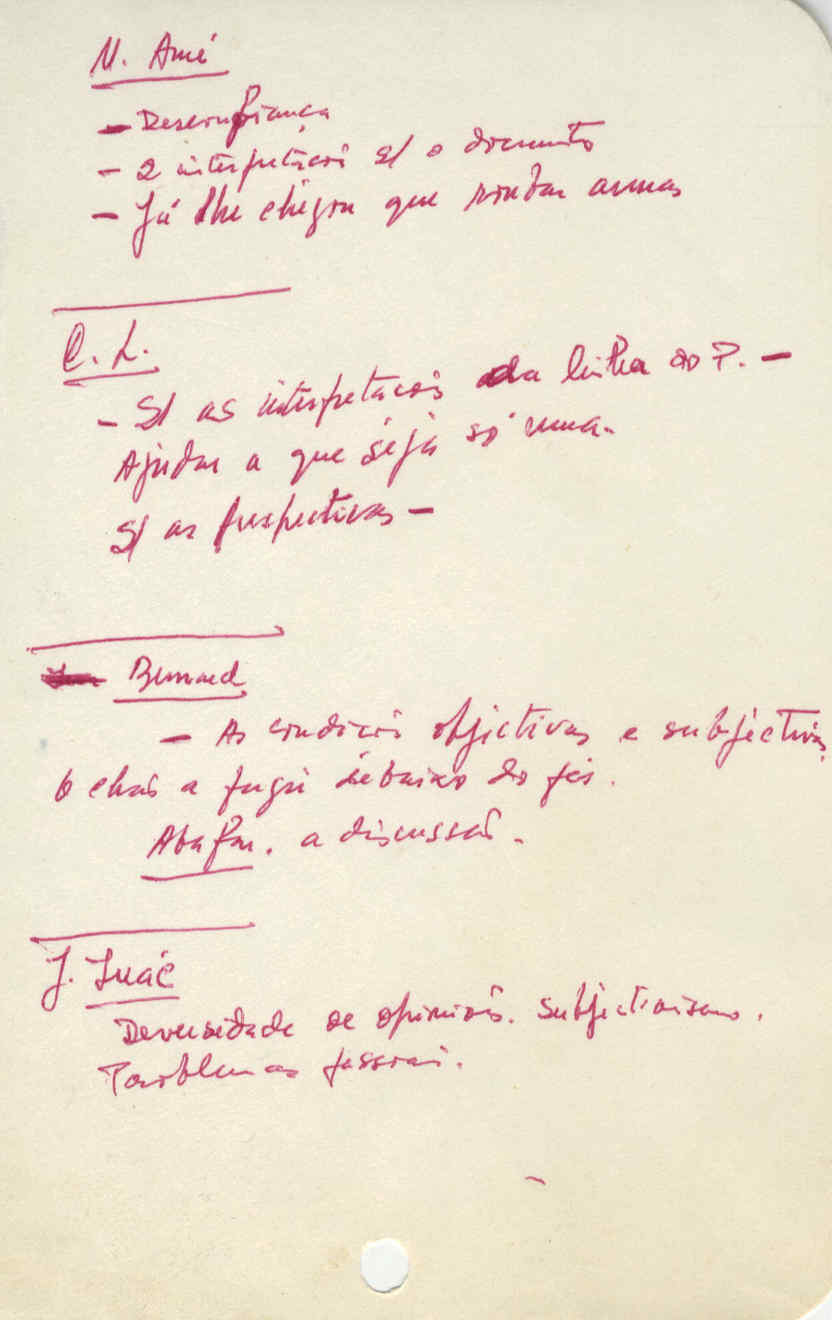 M. Amé
- Desconfiança
- 2 interpretacoi s/ o documento
- Já lhe chegou que armas
C. L.
- S/ as interpretacois da linha do P. -
Ajudar a que seja só uma.
S/ as perspectivas -
Bernard
- As condicoi objectivas e subjectivas
o chaõ a fugir debaixo do pés.
Abafar. a discussaõ.
J. Inác
Deversidade de opinioes. Subjectivismo.
Problemas pessoai.